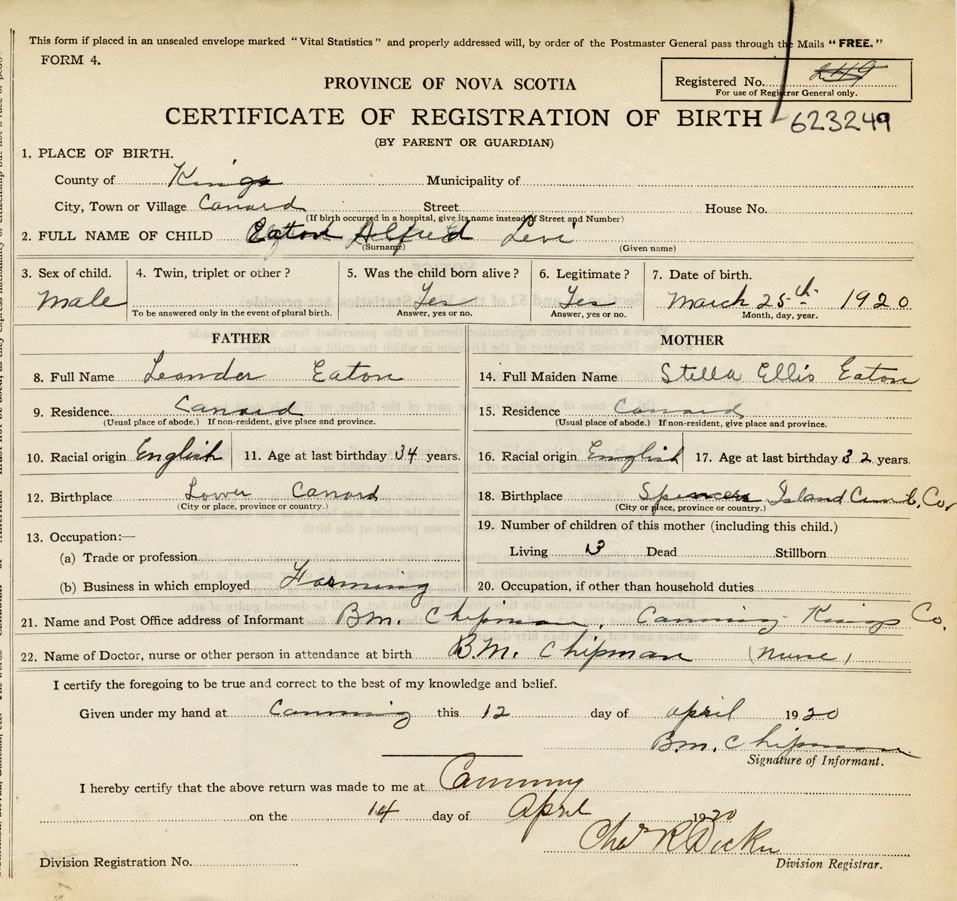 This form if placed in an unsealed envelope marked "Vital Statistics" and properly addressed will, by order of the Postmaster General pass through the Mails "FREE."
FORM 4.
Registered No. 249
For use of Registrar General only.
PROVINCE OF NOVA SCOTIA
CERTIFICATE OF REGISTRATION OF BIRTH
623249
(BY PARENT OR GUARDIAN)
1. PLACE OF BIRTH.
County of Kings Municipality of
City, Town or Village Canard Street House No.
(If birth occurred in a hospital, give its name instead of Street and Number)
2. FULL NAME OF CHILD Eaton Alfred Levi
(Surname) (Given name)
3. Sex of child. 4. Twin, triplet or other? 5. Was the child born alive? 6. Legitimate? 7. Date of birth.
Male Yes Yes March 25th 1920
To be answered only in the event of plural birth. Answer, yes or no. Answer, yes or no. Month, day, year.
FATHER MOTHER
8. Full Name Leander Eaton 14. Full Maiden Name Stella Ellis Eaton
9. Residence. Canard 15. Residence Canard
(Usual place of abode.) If non-resident, give place and province. (Usual place of abode.) If non-resident, give place and province.
10. Racial origin English 11. Age at last birthday 34 years. 16. Racial origin English 17. Age at last birthday 32 years.
12. Birthplace Lower Canard 18. Birthplace Spencers Island Cumb. Co
(City or place, province or country.) (City or place, province or country.)
13. Occupation:— 19. Number of children of this mother (including this child.)
(a) Trade or profession Living 3 Dead Stillborn
(b) Business in which employed Farming 20. Occupation, if other than household duties
21. Name and Post Office address of Informant B.M. Chipman, Canning Kings Co.
22. Name of Doctor, nurse or other person in attendance at birth B.M. Chipman (Nurse)
I certify the foregoing to be true and correct to the best of my knowledge and belief.
Given under my hand at Canning this 12 day of april 1920
B.M. Chipman
Signature of Informant.
I hereby certify that the above return was made to me at Canning
on the 14 day of April 1920
Chas R Dickie
Division Registration No. Division Registrar.